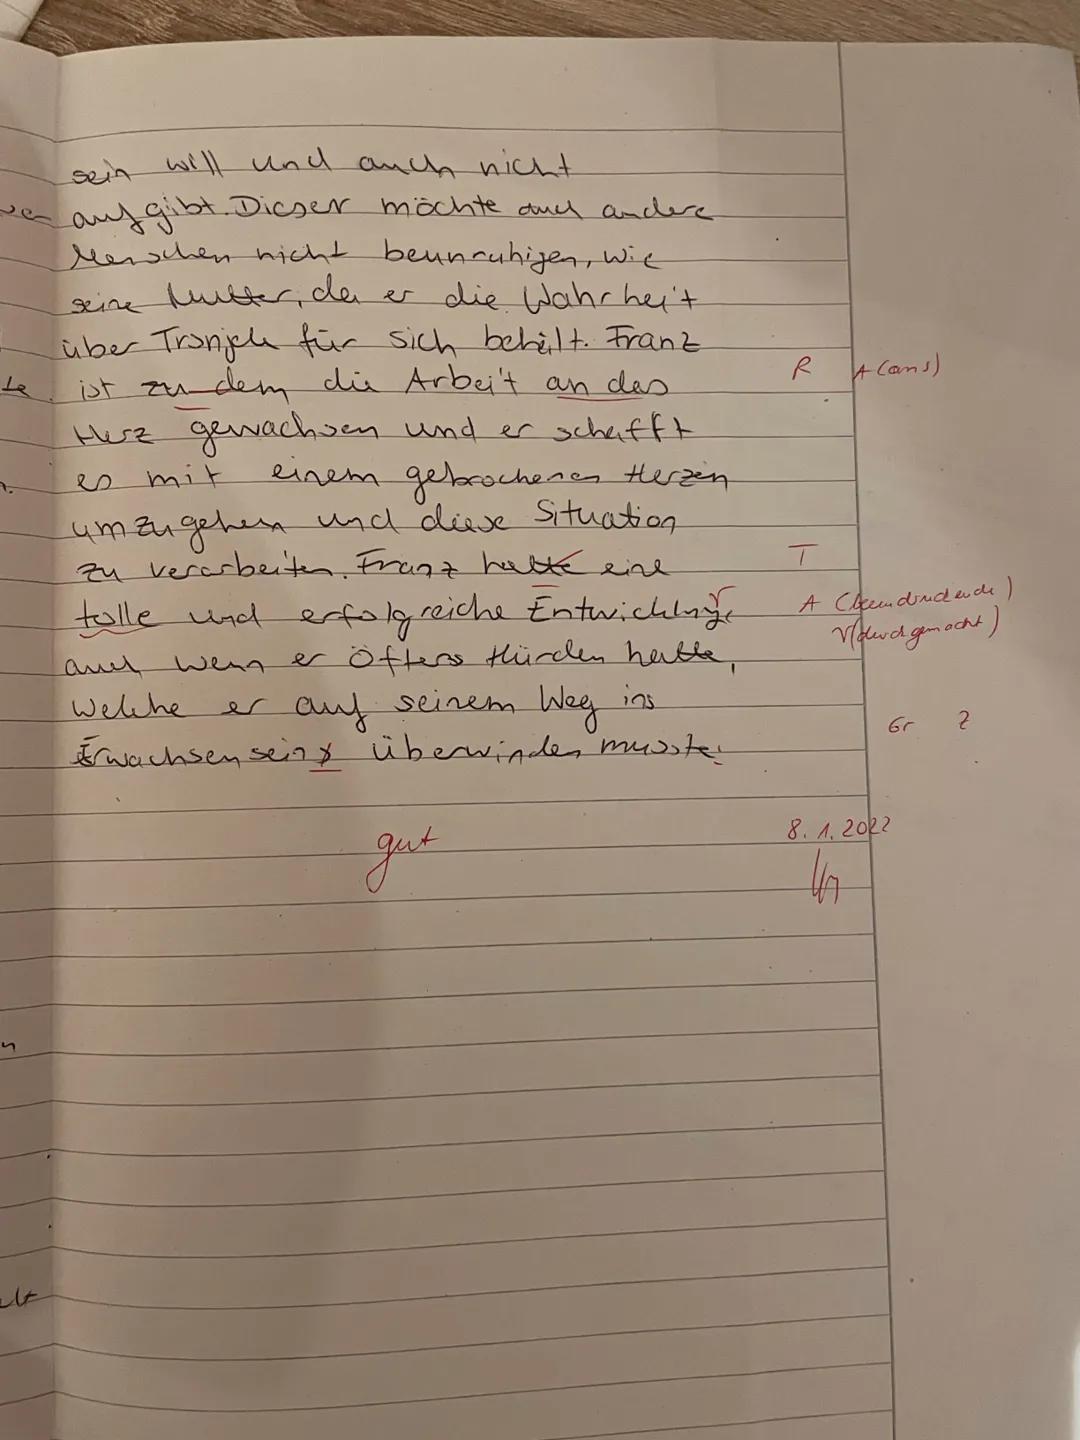 sein will und auch nicht
aufgibt. Dieser möchte auch andere
Menschen nicht beunruhigen, wie
seine Mutter, da er die Wahrheit
über Trsnjek für sich behält. Franz
ist zu dem die Arbeit an das R A (ans)
Herz gewachsen und er schafft
es mit einem gebrochenen Herzen
umzugehen und diese Situation
zu verarbeiten. Franz hatte eine T
tolle und erfolgreiche Entwicklung, A (beeindruckende)
V (durchgemacht)
auch wenn er Öfters Hürden hatte,
welche er auf seinem Weg ins
Erwachsensein überwinden musste. Gr Z
gut 8.1.2022